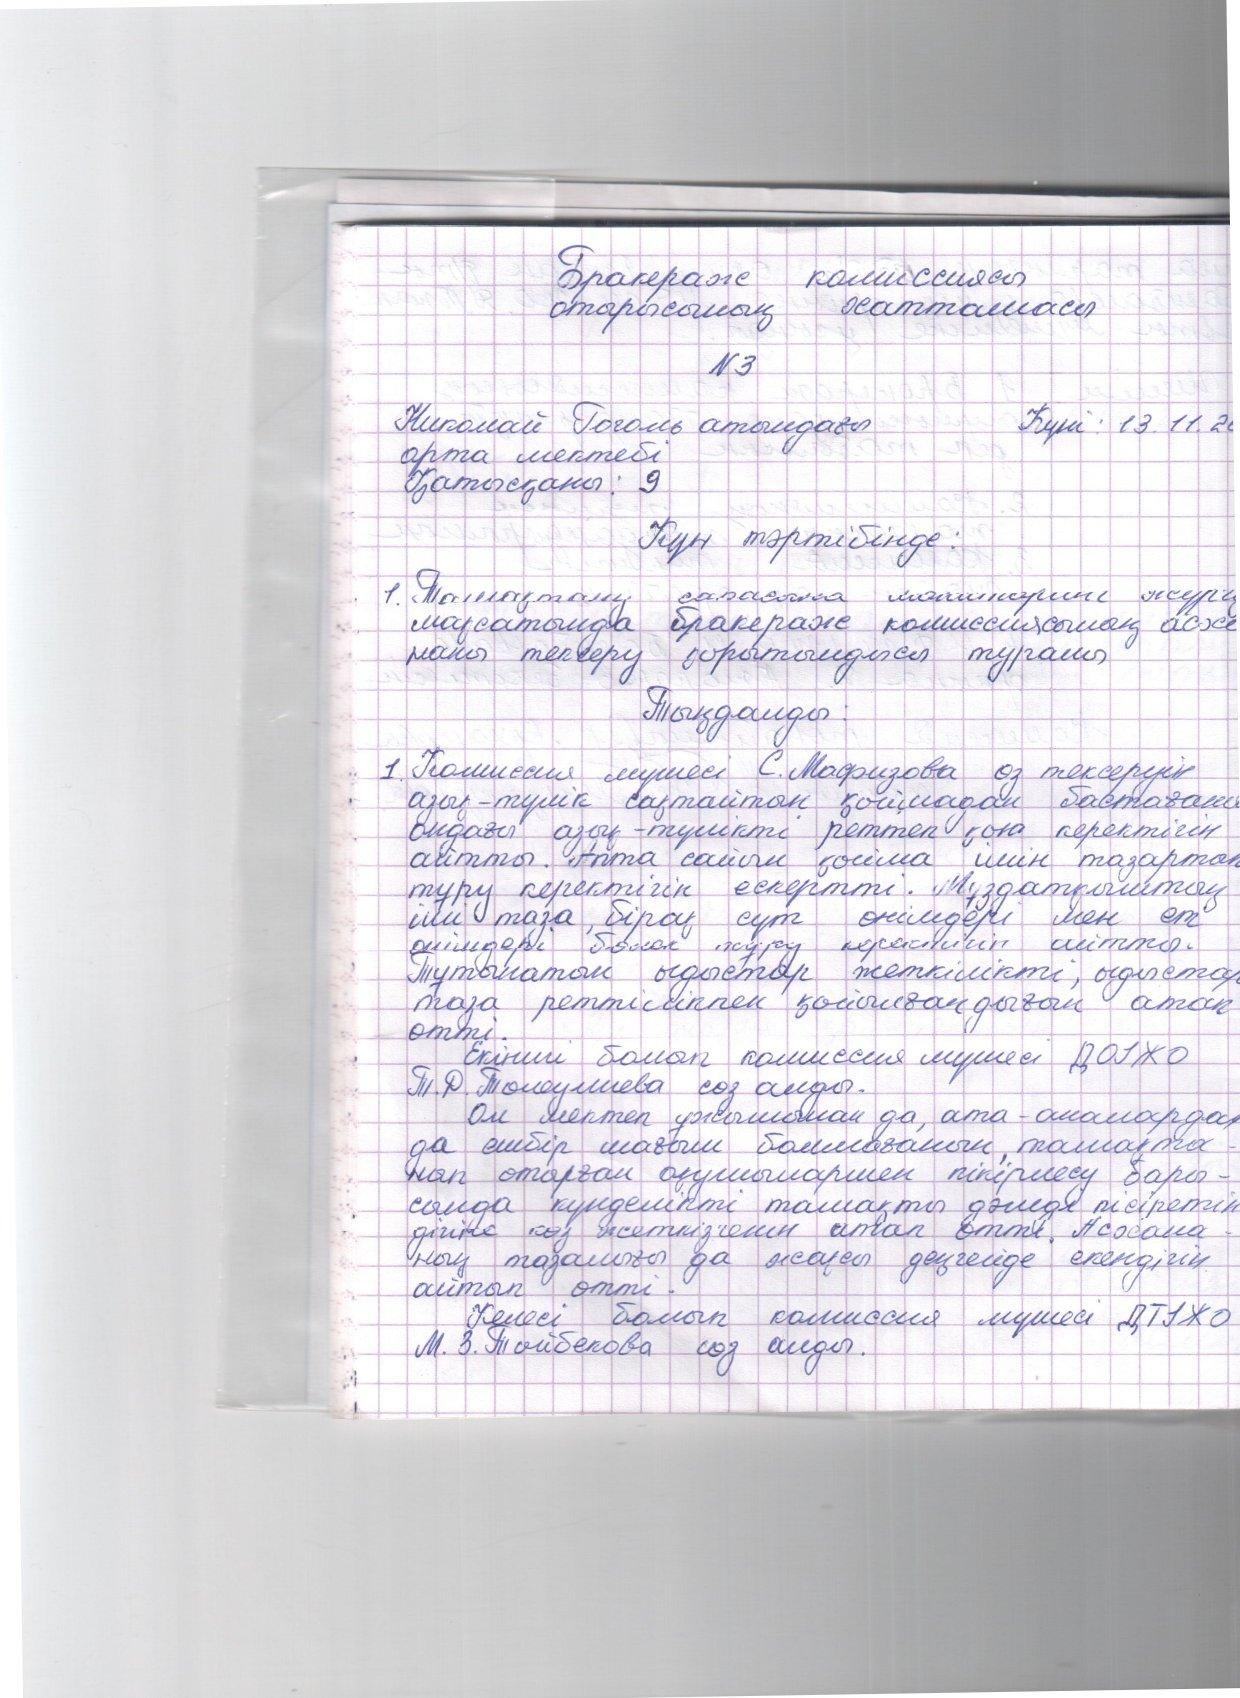 Бракераж комиссиясы
отырысының хаттамасы
N3
Николай Гоголь атындағы Күні: 13.11.20
орта мектебі
Қатысқаны: 9
Күн тәртібінде:
1. Тамақтану сапасына мониторинг жүргі
мақсатында бракераж комиссиясының асха
наны тексеру қорытындысы туралы
Тыңдалды:
1. Комиссия мүшесі С. Мафизова өз тексеруін
азық-түлік сақтайтын қоймадан бастағаны
ондағы азық-түлікті реттеп қою керектігін
айтты. Апта сайын қойма ішін тазартып
тұру керектігін ескертті. Мұздатқыштың
іші таза, бірақ сүт өнімдері мен ет
өнімдері бөлек тұру керектігін айтты.
Тұтынатын ыдыстар жеткілікті, ыдыстар
таза реттілікпен қойылғандығын атап
өтті.
Екінші болып комиссия мүшесі ДОІЖО
Т.Д. Толеулиева сөз алды.
Ол мектеп ұжымынан да, ата-аналардан
да ешбір шағым болмағанын, тамақта-
нып отырған оқушылармен пікірлесу бары-
сында күнделікті тамақты дәмді пісіретін
дігіне көз жеткізгенін атап өтті. Асхана-
ның тазалығы да жақсы деңгейде екендігін
айтып өтті.
Келесі болып комиссия мүшесі ДТІЖО
М.З. Тойбекова сөз алды.